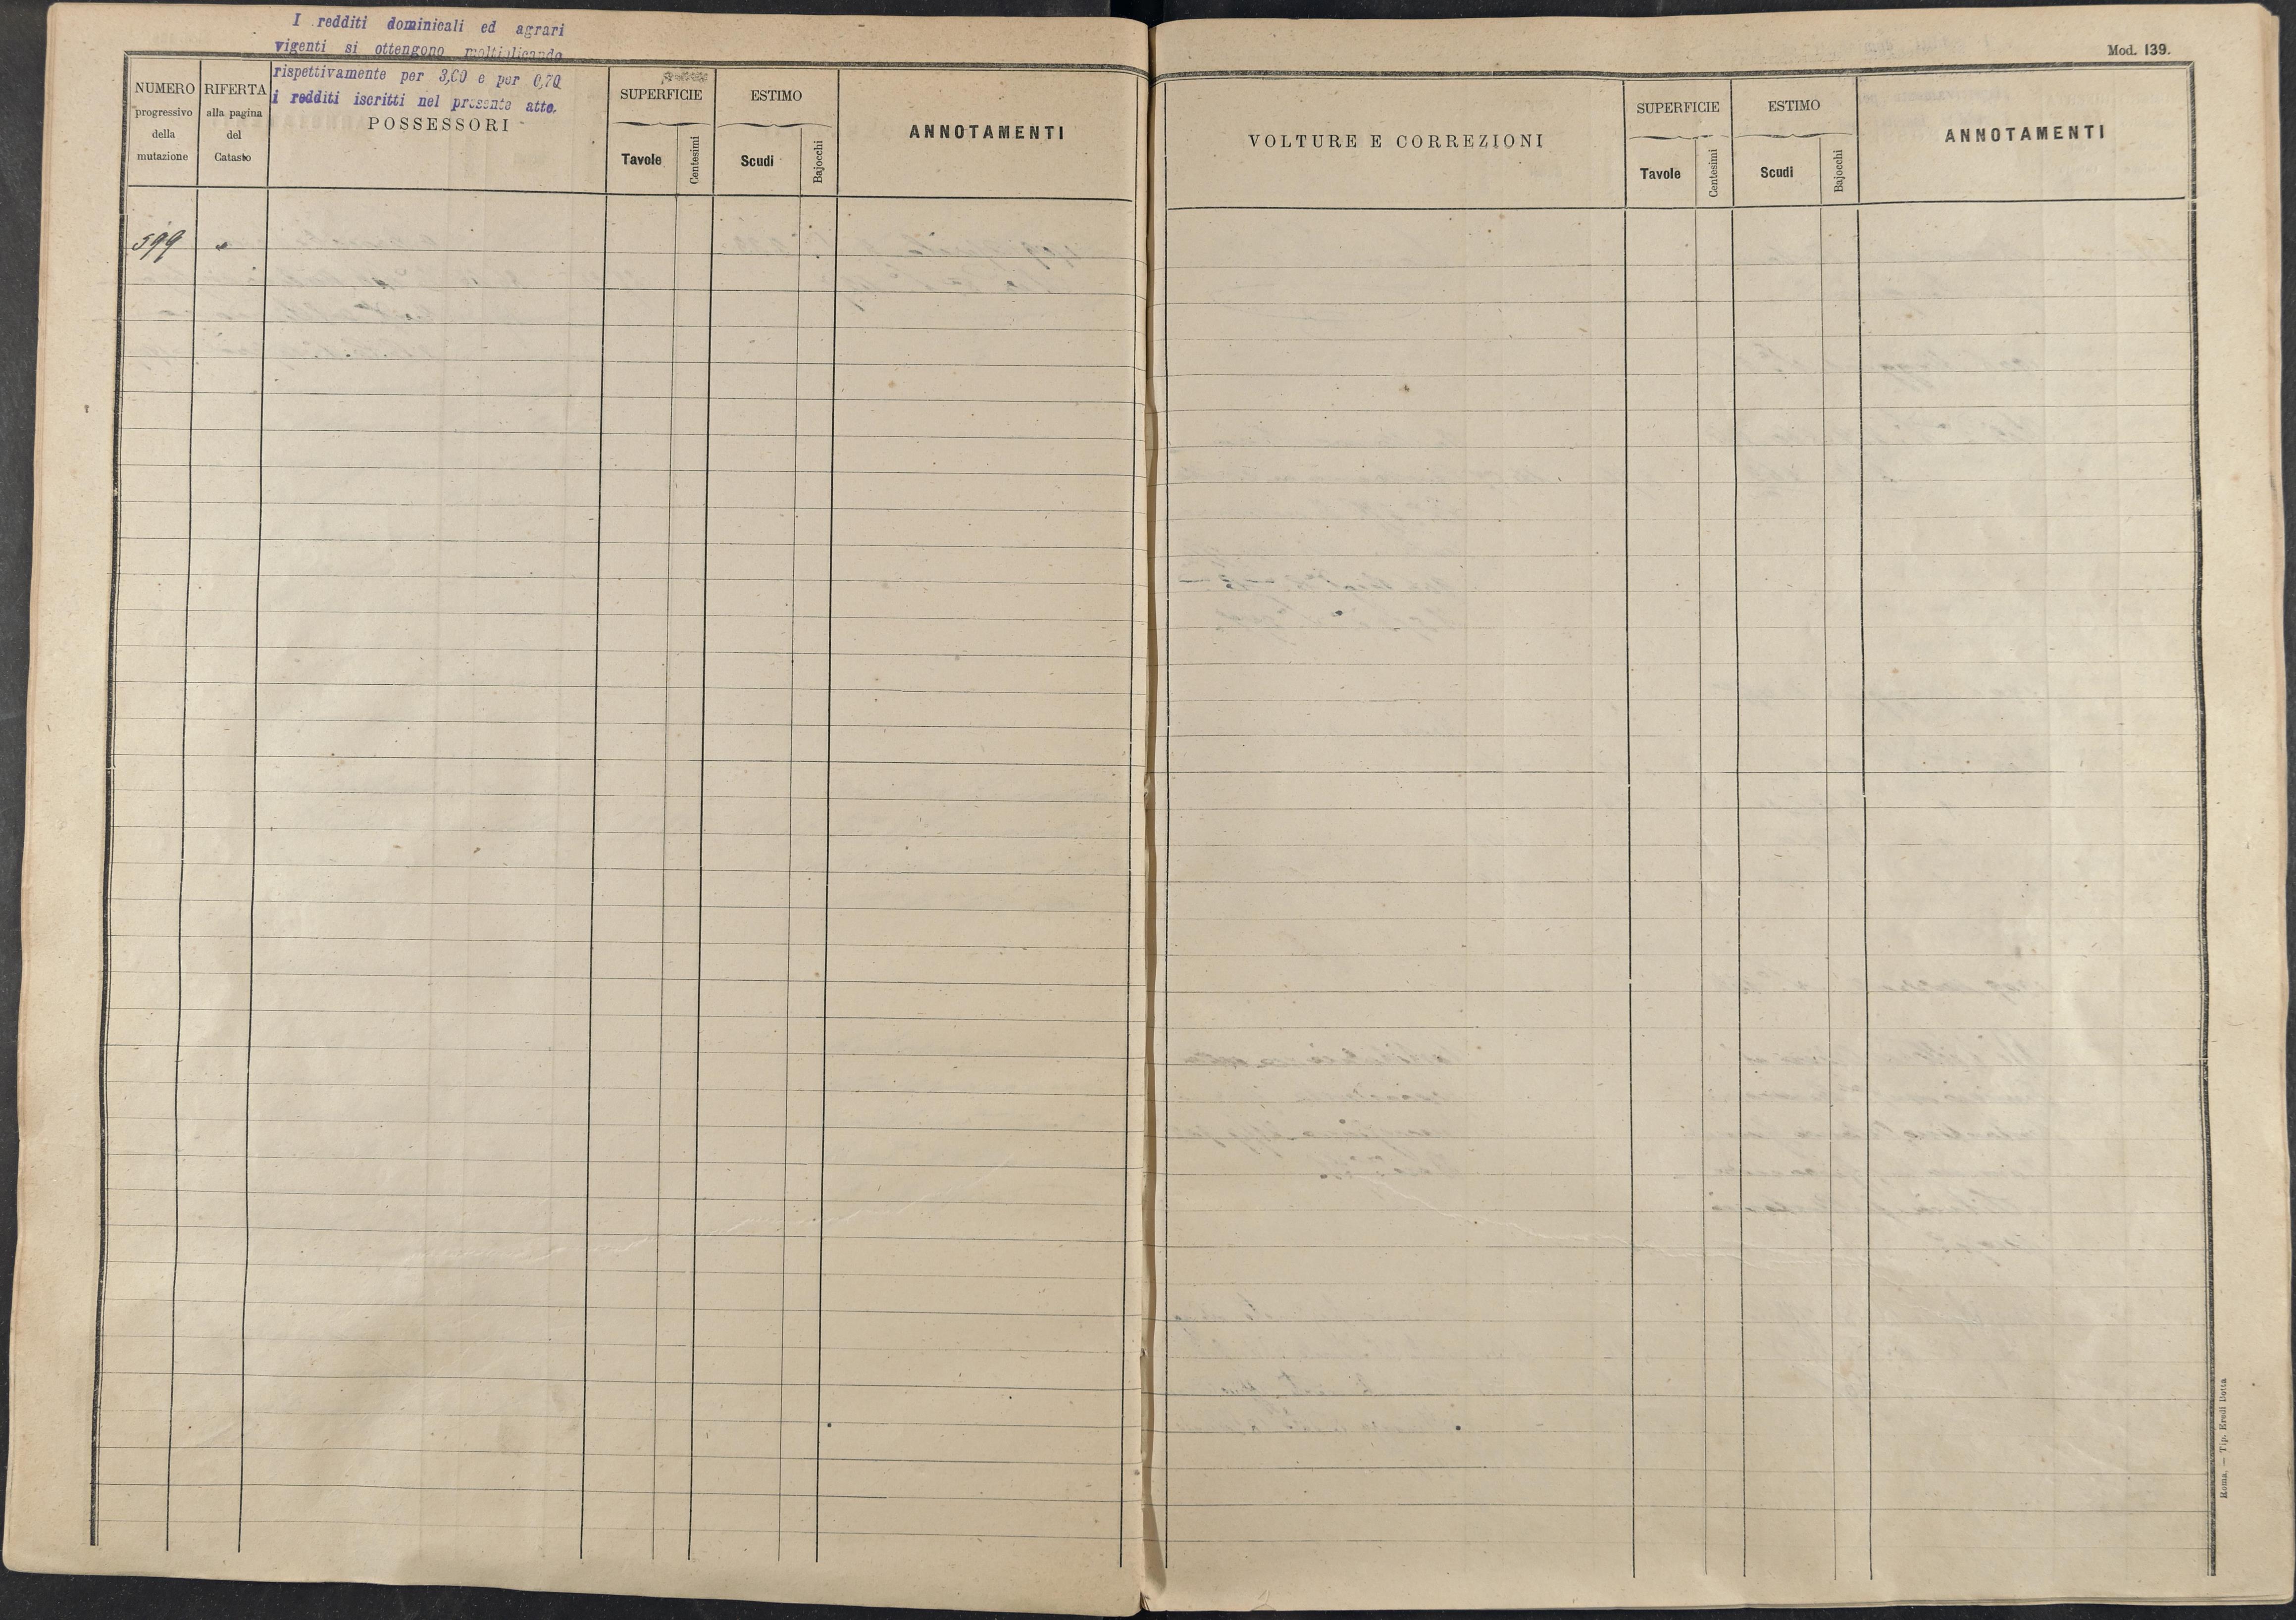 I redditi dominicali ed agrari
vigenti si ottengono moltiplicando
rispettivamente per 3,60 e per 0,70
i redditi iscritti nel presente atto.
NUMERO
progressivo
della
mutazione
RIFERTA
alla pagina
del
Catasto
POSSESSORI
SUPERFICIE
Tavole
Centesimi
ESTIMO
Scudi
Bajocchi
ANNOTAMENTI
599 "
Mod. 139.
VOLTURE E CORREZIONI
SUPERFICIE
Tavole
Centesimi
ESTIMO
Scudi
Bajocchi
ANNOTAMENTI
Roma. — Tip. Eredi Botta